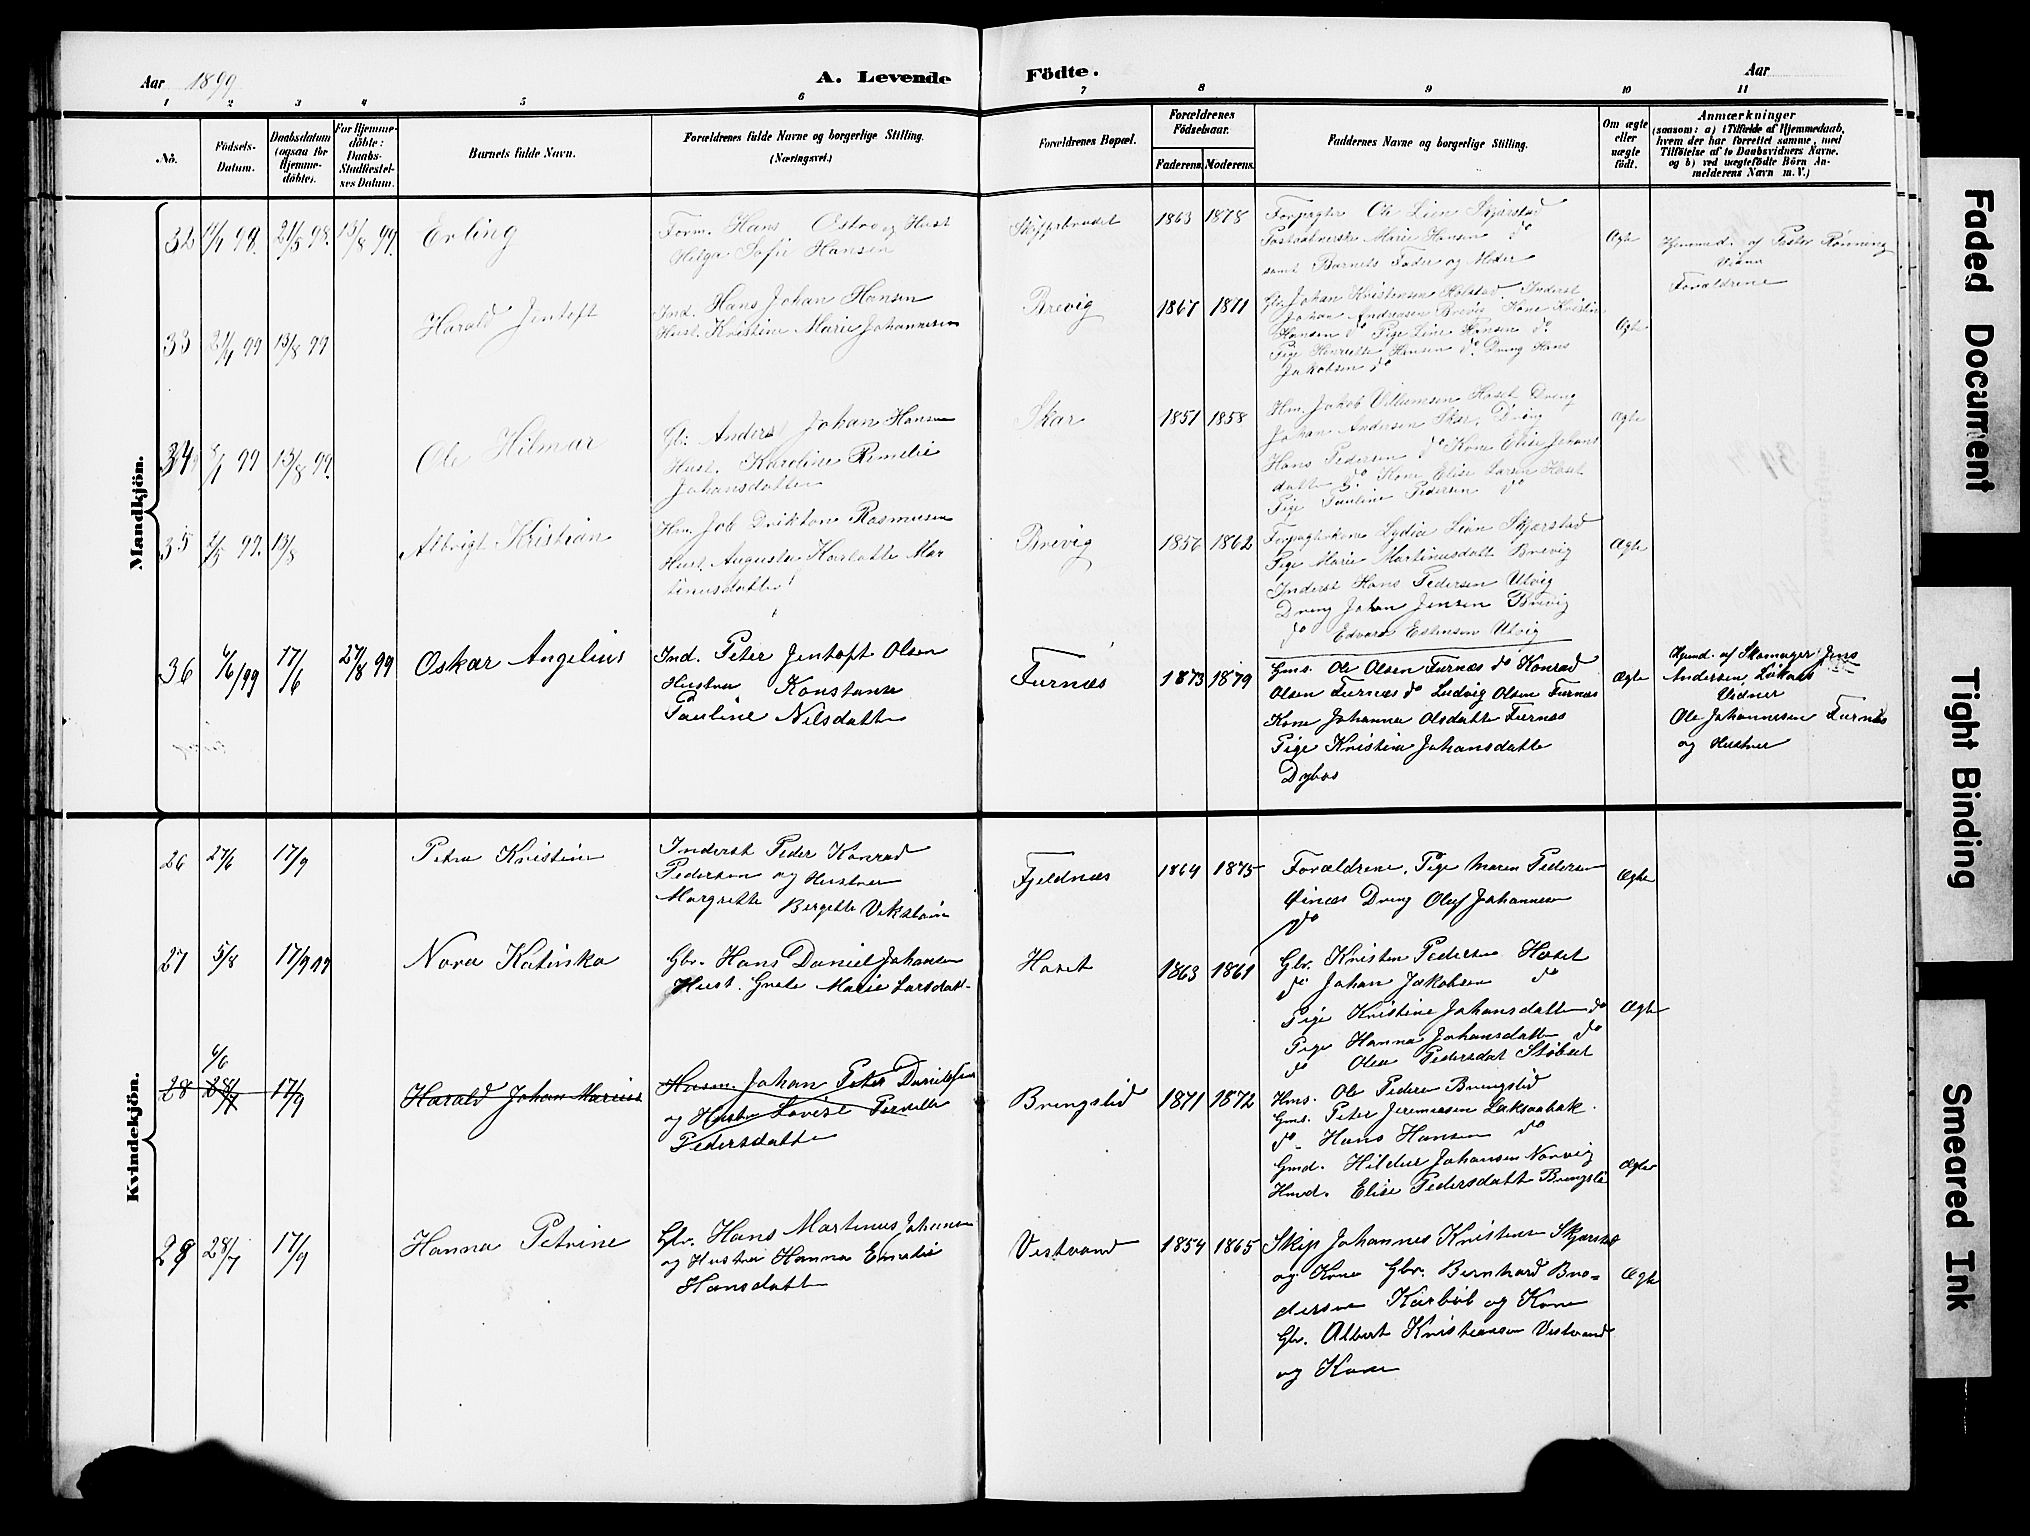 Aar 1899
A. Levende Födte.
Aar
1 2 3 4 5 6 7 8 9 10 11
No.
Födsels-Datum.
Daabsdatum (ogsaa for Hjemme-döbte).
For Hjemme-döbte: Daabs-Stadfæstel-ses Datum.
Barnets fulde Navn.
Forældrenes fulde Navne og borgerlige Stilling. (Næringsvei.)
Forældrenes Bopæl.
Forældrenes Födselsaar.
Faderens. Moderens.
Faddernes Navne og borgerlige Stilling.
Om ægte eller uægte födt.
Anmærkninger
(saasom: a) i Tilfælde af Hjemmedaab,
hvem der har forrettet samme, med
Tilföielse af to Daabsvidners Navne,
og b) ved uægtefödte Börn An-
melderens Navn m. V.)
Mandkjön.
32 98. 21/5 98. 13/8 99.
Erling
Form. Hans Ostvog Hust
Helga Sofie Hansen
1863 1878
Forpagter Ole Lien Skjærstad
Marie Hansen do
samt Barnets Fader og Moder
Ægte
Hjemmed. af Pastor Rönning
Vidner
Forældrene
33 21/4 99 13/8 99
Harald Jentoft
Ind. Hans Johan Hansen
Hust. Kristine Marie Johannesen
Brevig
1867 1871
Johan Kristensen Inderst
Johan Andreasen Brevig Kone Kristine
Hansen do Pige Line Hansen do
Pige Henriette Hansen do Dreng Hans
Jakobsen do
Ægte
34 99 13/8 99.
Ole Hilmar
Gb. Anders Johan Hansen
Hust. Karoline
Johansdatter
Skar
1851 1858
Hm. Jakob Villumsen Hoset Dreng
Johan Andersen Skar, Dreng
Hans Pedersen do Kone Elise Johans
datter do Kone Elise Larsen Hoset
Pige Pauline Pedersen do
Ægte
35 2/5 99. 13/8
Albrigt Kristian
Hm. Job Rasmusen
Hust. Augusta Mar
tinusdatter
Brevig
1856 1862
Forpagterkone Lydia Lien Skjærstad
Pige Marie Martinusdatt Brevig
Inderst Hans Pedersen Utvig
Dreng Johan Jensen Brevig
do Edvard Estensen Utvig
Ægte
36 4/6/99 17/6 27/8 99
Oskar Angelius
Ind. Peter Jentoft Olsen
Hustru Konstanse
Pauline Nilsdatter
Furnæs
1873 1879
Gms. Ole Olsen Furnæs do Konrad
Olsen Furnæs do Ludvig Olsen Furnæs
Kone Johanna Olsdatter Furnæs
Pige Kristina Johansdatter
Ægte
Hjemd. af Skomager Jens
Andersen,
Vidner
Ole Johannesen Furnæs
og Hustru
Kvindekjön.
26 27/6 17/9
Petra Kristine
Inderst Peder Konrad
Pedersen og Hustru
Margrethe Bergette
Fjeldnæs
1864 1875
Forældrene, Pige Maren Pedersen
Dreng Oluf Johannesen
do
Ægte
27 5/8 17/9 99
Nora Katinka
Gbr. Hans Daniel Johansen
Hust. Grete Marie Larsdatt.
Hoset
1863 1861
Gbr. Kristen Pedersen Hoset
do Johan Jakobsen do
Pige Kristine Johansdatter do
Pige Hanna Johansdatter do
do Olea Pedersdat
Ægte
6/6
28 28/7 17/9
Harald Johan Marius
Husm. Johan Peter Danielsen
og Hustr Lovise Pernille
Pedersdatter
Bringslid
1871 1872
Hms. Ole Pedersen Bringslid
Gms. Peter Jeremiasen Laksaabak.
do Hans Hansen do
Gmd. Hildur Johansen
Hmd. Elise Pedersdatt Bringsli
Ægte
29 28/7 17/9
Hanna Petrine
Gbr. Hans Martinus Johansen
og Hustru Hanna Emelie
Hansdatter
Vestvand
1854 1865
Skip Johannes Kristensen Skjærstad
og Kone Gbr. Bernhard Bro-
dersen Karbøl og Kone
Gbr. Albert Kristiansen Vestvand
og Kone
Ægte
Faded Document
Tight Binding
Smeared Ink